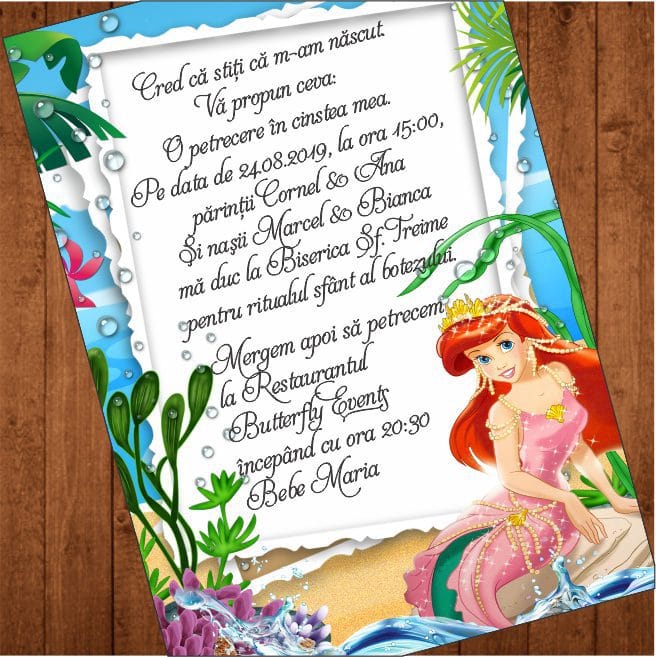 Cred că stiți că m-am născut.
Vă propun ceva:
O petrecere în cinstea mea.
Pe data de 24.08.2019, la ora 15:00,
părinții Cornel & Ana
Și nașii Marcel & Bianca
mă duc la Biserica Sf. Treime
pentru ritualul sfânt al botezului.
Mergem apoi să petrecem
la Restaurantul
Butterfly Events
începând cu ora 20:30
Bebe Maria